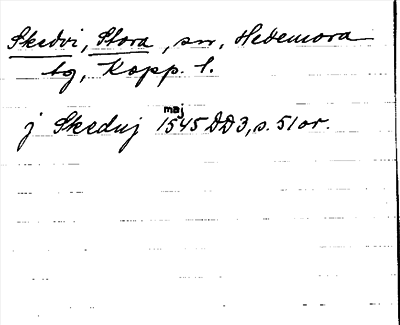 Skedvi, Stora, sn, Hedemora
tg, Kopp. l.
maj
j Skeduj 1545 DD3, s. 51 or.